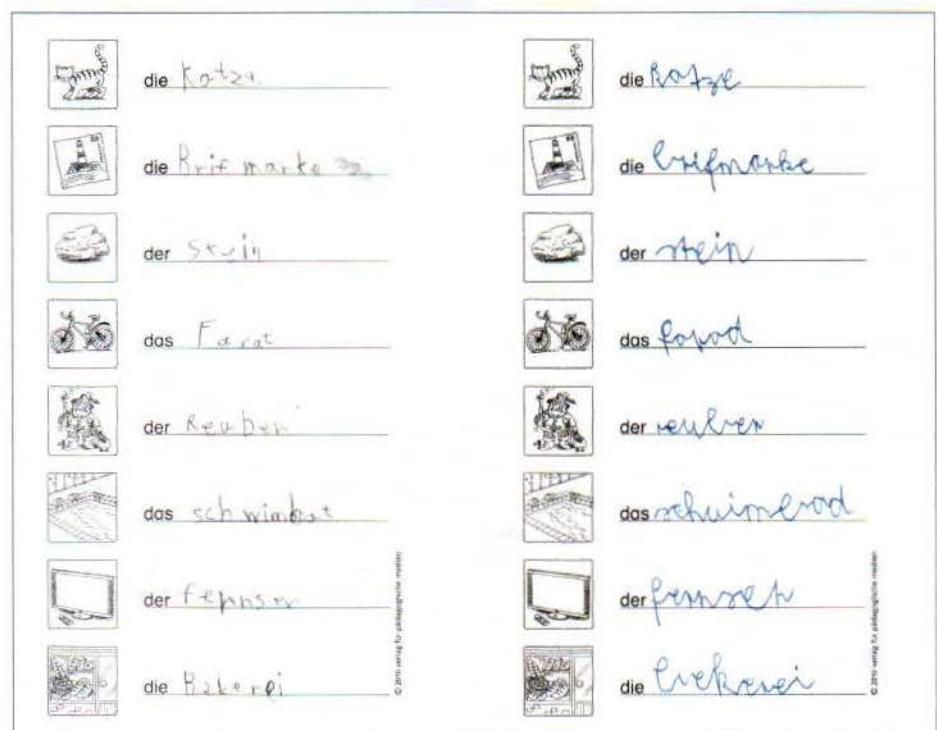 die Katze
die Brifmarke
der Stein
das Farat
der Reuber
das schwimbat
der fernser
die Bakerei
© 2010 verlag für pädagogische medien
die Katze
die brifmarke
der stein
das farad
der reuber
das schwimbad
der fernseh
die bekerei
© 2010 verlag für pädagogische medien